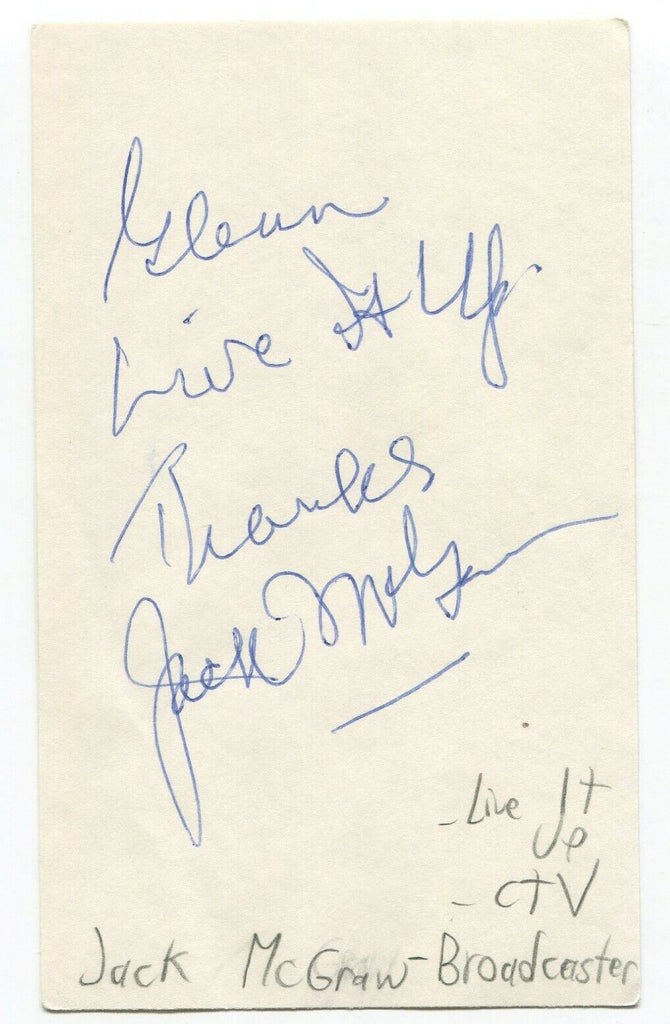 Glenn
Live It Up
Thanks
Jack McGraw
- Live It
Up
- CTV
Jack McGraw - Broadcaster